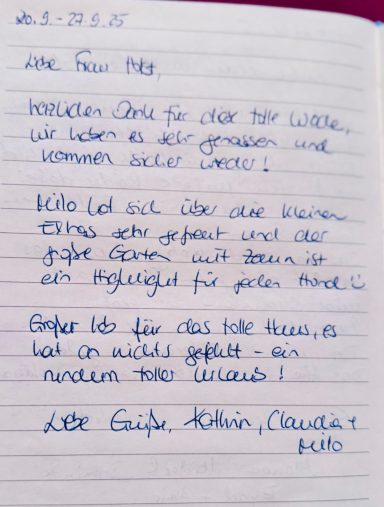 20.9. - 27.9.25
Liebe Frau Holst,
herzlichen Dank für diese tolle Woche,
wir haben es sehr genossen und
kommen sicher wieder!
Milo hat sich über die kleinen
Extras sehr gefreut und der
große Garten mit Zaun ist
ein Highlight für jeden Hund
Großer Lob für das tolle Haus, es
hat an nichts gefehlt - ein
rundem toller Urlaub!
Liebe Grüße, Kathrin, Claudia +
Milo